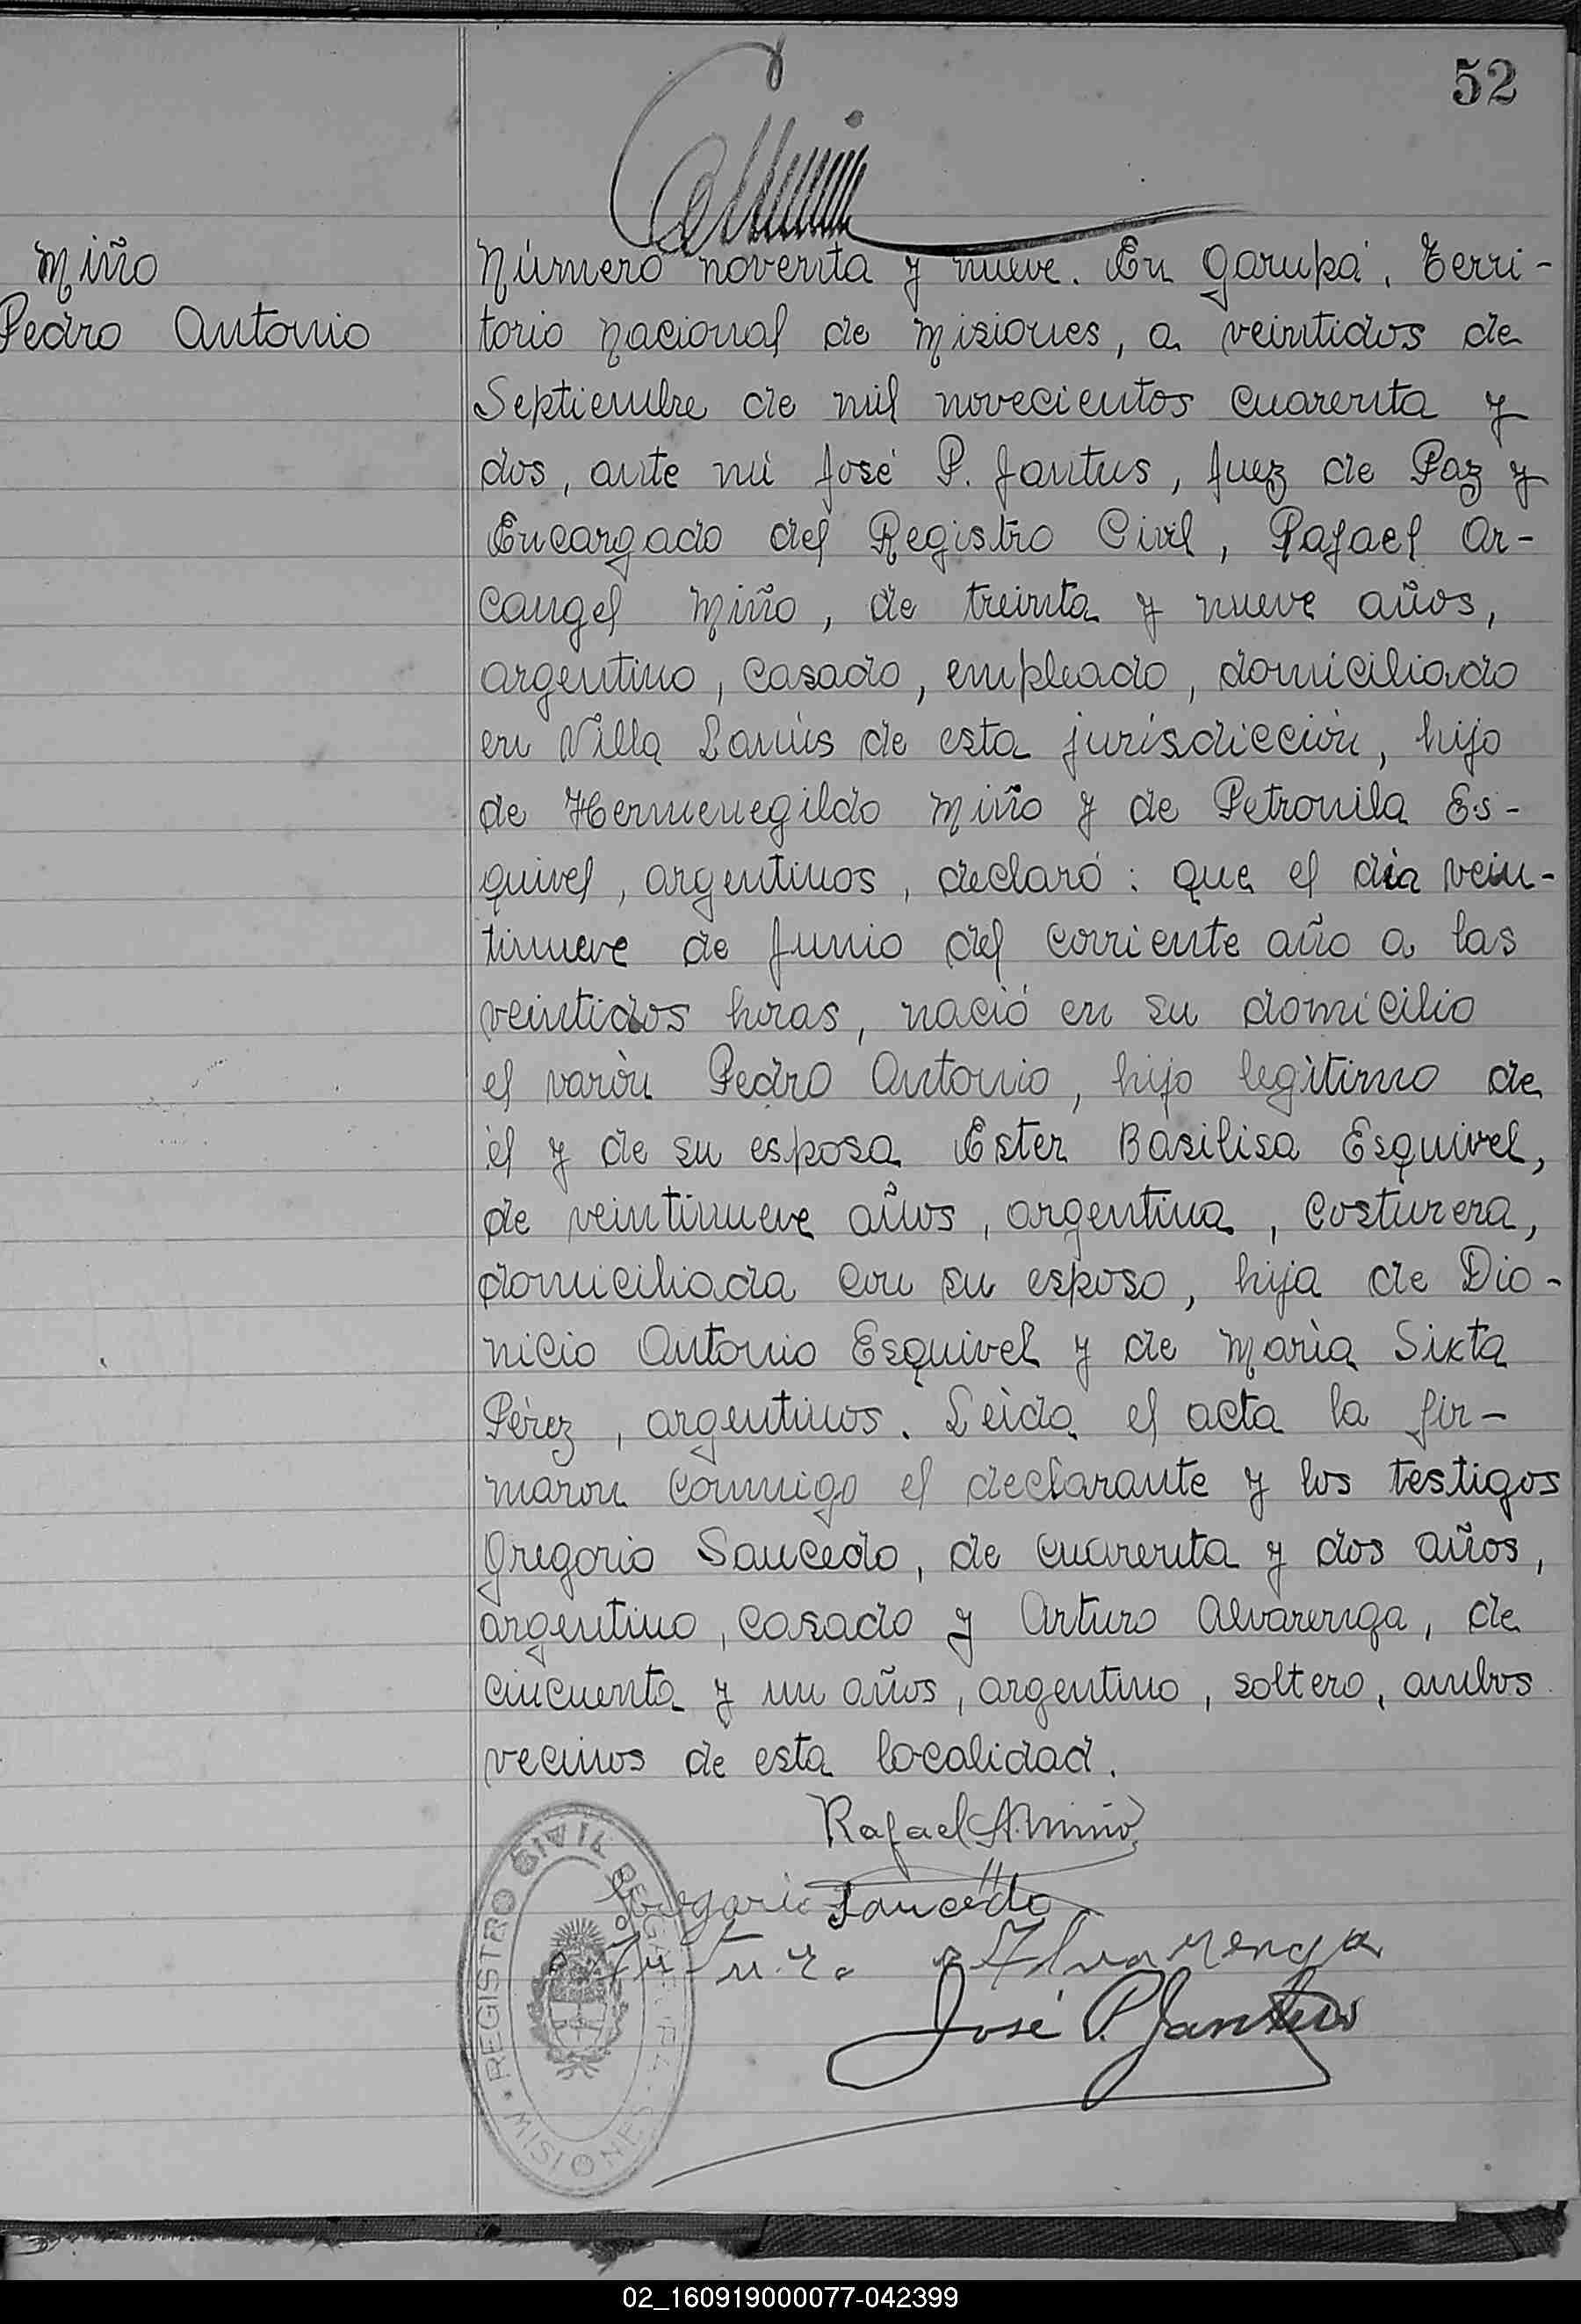 52
Miño
Pedro Antonio
Número noventa y nueve. En Garupá, Terri-
torio Nacional de Misiones, a veintidos de
Septiembre de mil novecientos cuarenta y
dos, ante mi José P. Jantus, Juez de Paz y
Encargado del Registro Civil, Rafael Ar-
cangel Miño, de treinta y nueve años,
argentino, casado, empleado, domiciliado
en Villa Lanús de esta jurisdicción, hijo
de Hermenegildo Miño y de Petronila Es-
quivel, argentinos, declaró: que el día vein-
tinueve de Junio del corriente año a las
veintidos horas, nació en su domicilio
el varón Pedro Antonio, hijo legitimo de
él y de su esposa Ester Basilisa Esquivel,
de veintinueve años, argentina, costurera,
domiciliada con su esposo, hija de Dio-
nicio Antonio Esquivel y de María Sixta
Pérez, argentinos. Leida el acta la fir-
maron conmigo el declarante y los testigos
Gregorio Saucedo, de cuarenta y dos años,
argentino, casado y Arturo Alvarenga, de
cincuenta y un años, argentino, soltero, ambos
vecinos de esta localidad.
Rafael A. Miño
Gregorio Saucedo
Arturo Alvarenga
José P. Jantus
REGISTRO CIVIL
MISIONES
02_160919000077-042399